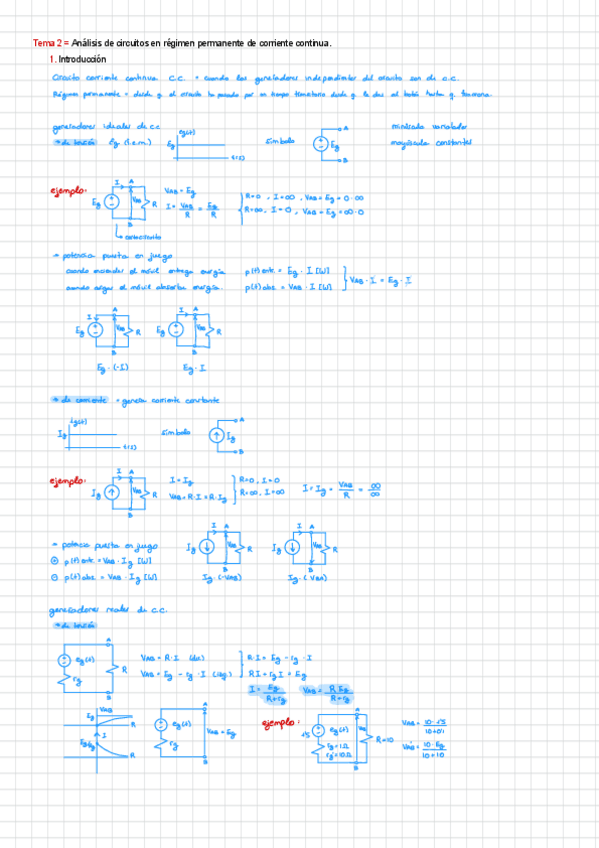 Tema 2 = Análisis de circuitos en régimen permanente de corriente continua.
1. Introducción
Circuito corriente continua C.C. = cuando los generadores independientes del circuito son de c.c.
Régimen permanente = desde q. el circuito ha pasado por un tiempo desde q. le das al botón hasta q. funciona.
generadores ideales de c.c. minúscula variables
→ de tensión Eg (f.e.m.) eg(t) Eg t(s) símbolo Eg A B mayúscula constantes
ejemplo: I A Eg VAB R B VAB = Eg
I = VAB/R = Eg/R
R=0, I=∞, VAB = Eg = 0·∞
R=∞, I=0, VAB = Eg = ∞·0
→ potencia puesta en juego
cuando enciendes el móvil entrega energía p(t) entr. = Eg · I [W]
cuando cargas el móvil absorbe energía. p(t) abs = VAB · I [W]
VAB · I = Eg · I
I A Eg VAB R B
A Eg VAB R B
Eg · (-I) Eg · I
→ de corriente = genera corriente constante
ig(t) Ig t(s) símbolo A Ig B
ejemplo: I A Ig VAB R B I = Ig
VAB = R·I = R·Ig
R=0, I=0
R=∞, I=∞
I = Ig = VAB/R = ∞/∞
→ potencia puesta en juego
p(t) entr. = VAB · Ig [W]
p(t) abs = VAB · Ig [W]
I A Ig VAB R B
I A Ig VAB R B
Ig · (-VAB) Ig · (VBA)
generadores reales de c.c.
→ de tensión
A eg(t) rg R B
VAB = R·I
VAB = Eg - rg · I
R·I = Eg - rg · I
RI + rg I = Eg
I = Eg/(R+rg) VAB = R Eg/(R+rg)
VAB Eg R
I Eg/rg R
A eg(t) rg VAB = Eg B
ejemplo: A eg(t) R=10 B
rg = 1Ω